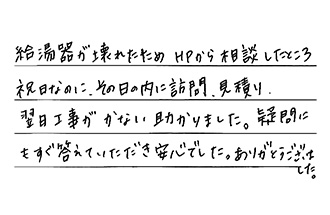 給湯器が壊れたため HPから相談したところ
祝日なのに、その日の内に訪問、見積り、
翌日工事がかない助かりました。疑問に
もすぐ答えていただき安心でした。ありがとうございま
した。